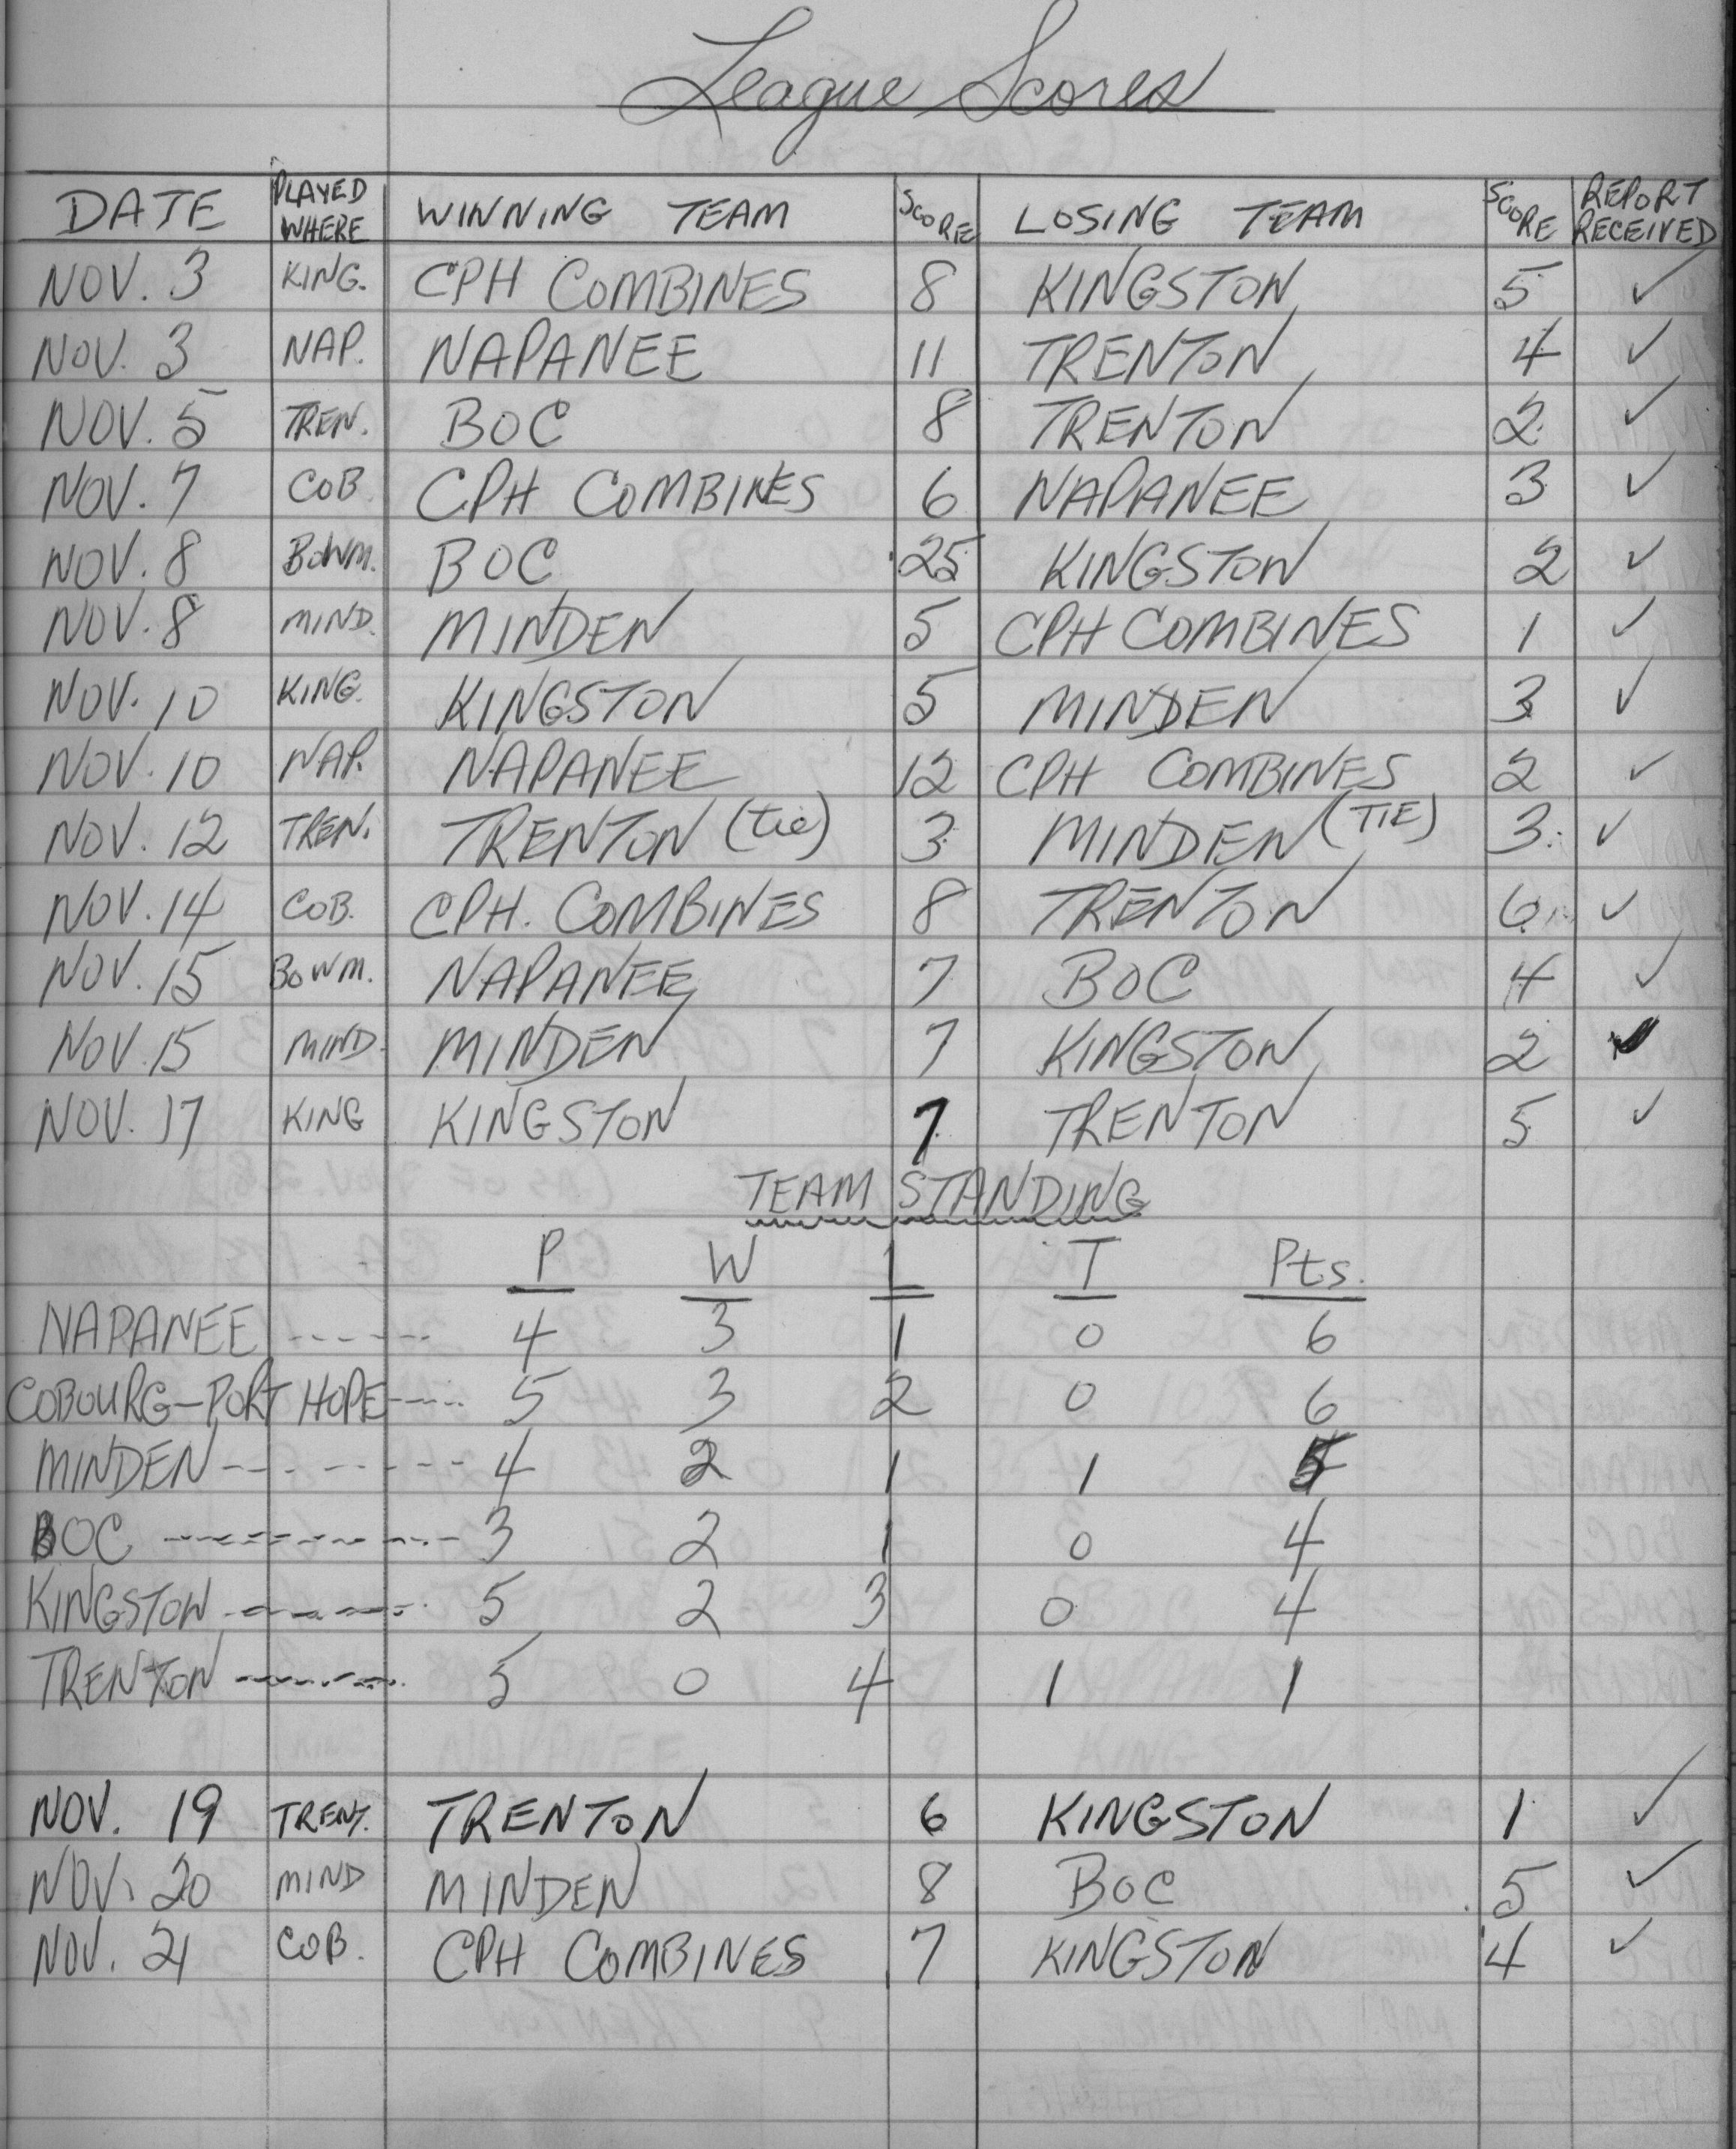 League Scores
DATE PLAYED WHERE WINNING TEAM SCORE LOSING TEAM SCORE REPORT RECEIVED
NOV. 3 KING. CPH COMBINES 8 KINGSTON 5 ✓
NOV. 3 NAP. NAPANEE 11 TRENTON 4 ✓
NOV. 5 TREN. BOC 8 TRENTON 2 ✓
NOV. 7 COB CPH COMBINES 6 NAPANEE 3 ✓
NOV. 8 BOWM. BOC 25 KINGSTON 2 ✓
NOV. 8 MIND. MINDEN 5 CPH COMBINES 1 ✓
NOV. 10 KING. KINGSTON 5 MINDEN 3 ✓
NOV. 10 NAP. NAPANEE 12 CPH COMBINES 2 ✓
NOV. 12 TREN. TRENTON (tie) 3 MINDEN (TIE) 3 ✓
NOV. 14 COB. CPH. COMBINES 8 TRENTON 6 ✓
NOV. 15 BOWM. NAPANEE 7 BOC 4 ✓
NOV. 15 MIND. MINDEN 7 KINGSTON 2 ✓
NOV. 17 KING KINGSTON 7 TRENTON 5 ✓
TEAM STANDING
P W L T Pts.
NAPANEE ------ 4 3 1 0 6
COBOURG-PORT HOPE ----- 5 3 2 0 6
MINDEN -------- 4 2 1 1 5
BOC ---------- 3 2 1 0 4
KINGSTON ------- 5 2 3 0 4
TRENTON ------- 5 0 4 1 1
NOV. 19 TRENT. TRENTON 6 KINGSTON 1 ✓
NOV. 20 MIND MINDEN 8 BOC 5 ✓
NOV. 21 COB. CPH COMBINES 7 KINGSTON 4 ✓